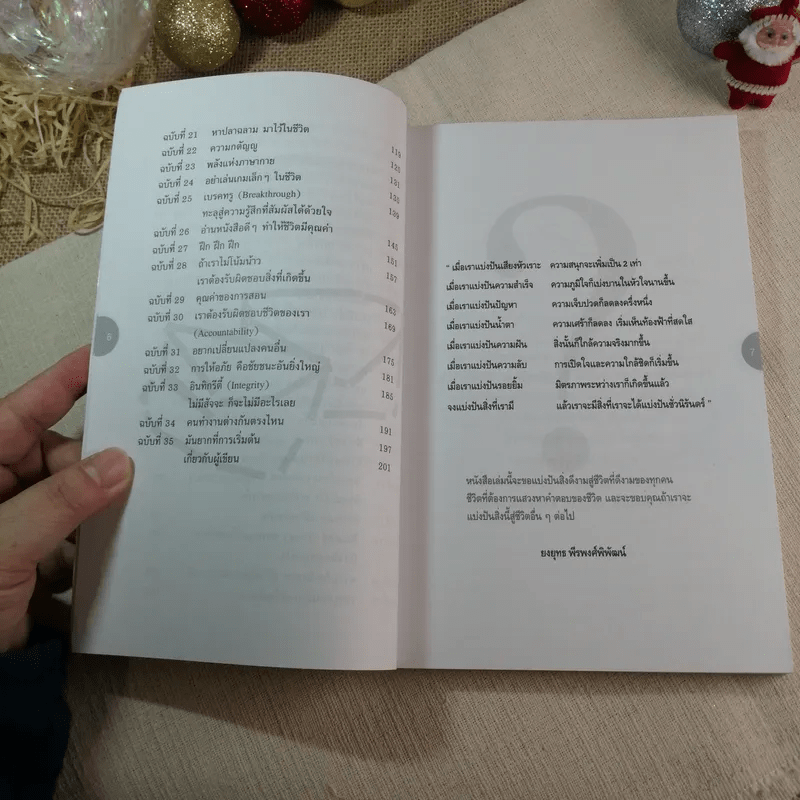 ฉบับที่ 21 หาปลาฉลาม มาไว้ในชีวิต 119
ฉบับที่ 22 ความกตัญญู 125
ฉบับที่ 23 พลังแห่งภาษากาย 131
ฉบับที่ 24 อย่าเล่นเกมเล็กๆ ในชีวิต 135
ฉบับที่ 25 เบรคทรู (Breakthrough) 139
ทะลุสู่ความรู้สึกที่สัมผัสได้ด้วยใจ
ฉบับที่ 26 อ่านหนังสือดีๆ ทำให้ชีวิตมีคุณค่า 145
ฉบับที่ 27 ฝึก ฝึก ฝึก 151
ฉบับที่ 28 ถ้าเราไม่โน้มน้าว 157
เราต้องรับผิดชอบสิ่งที่เกิดขึ้น
ฉบับที่ 29 คุณค่าของการสอน 163
ฉบับที่ 30 เราต้องรับผิดชอบชีวิตของเรา 169
(Accountability)
ฉบับที่ 31 อยากเปลี่ยนแปลงคนอื่น 175
ฉบับที่ 32 การให้อภัย คือชัยชนะอันยิ่งใหญ่ 181
ฉบับที่ 33 อินทิกริตี้ (Integrity) 185
ไม่มีสัจจะ ก็จะไม่มีอะไรเลย
ฉบับที่ 34 คนทำงานต่างกันตรงไหน 191
ฉบับที่ 35 มันยากที่การเริ่มต้น 197
เกี่ยวกับผู้เขียน 201
6
" เมื่อเราแบ่งปันเสียงหัวเราะ ความสนุกจะเพิ่มเป็น 2 เท่า
เมื่อเราแบ่งปันความสำเร็จ ความภูมิใจก็เบ่งบานในหัวใจนานขึ้น
เมื่อเราแบ่งปันปัญหา ความเจ็บปวดก็ลดลงครึ่งหนึ่ง
เมื่อเราแบ่งปันน้ำตา ความเศร้าก็ลดลง เริ่มเห็นท้องฟ้าที่สดใส
เมื่อเราแบ่งปันความฝัน สิ่งนั้นก็ใกล้ความจริงมากขึ้น
เมื่อเราแบ่งปันความลับ การเปิดใจและความใกล้ชิดก็เริ่มขึ้น
เมื่อเราแบ่งปันรอยยิ้ม มิตรภาพระหว่างเราก็เกิดขึ้นแล้ว
จงแบ่งปันสิ่งที่เรามี แล้วเราจะมีสิ่งที่เราจะได้แบ่งปันชั่วนิรันดร์ "
หนังสือเล่มนี้จะขอแบ่งปันสิ่งดีงามสู่ชีวิตที่ดีงามของทุกคน
ชีวิตที่ต้องการแสวงหาคำตอบของชีวิต และจะขอบคุณถ้าเราจะ
แบ่งปันสิ่งนี้สู่ชีวิตอื่น ๆ ต่อไป
ยงยุทธ พีรพงศ์พิพัฒน์
7